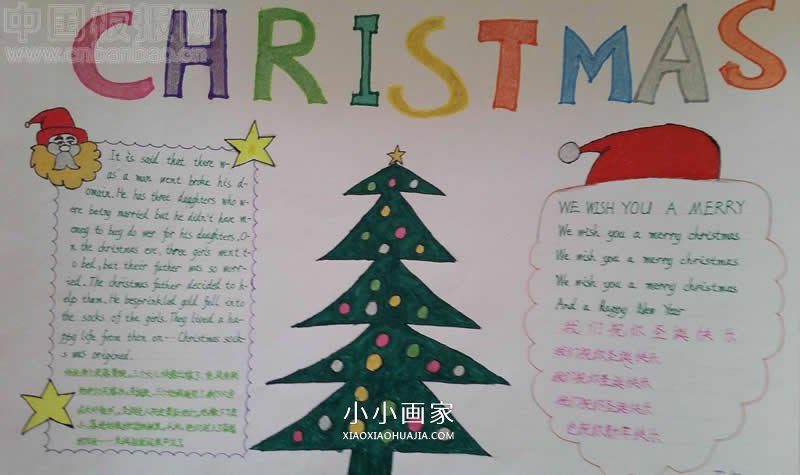 中国板报网
www.cnbanbao.cn
CHRISTMAS
It is said that there w-
as a man went broke his d-
omain. He has three daughters who w-
ere being married but he didn't have m-
oney to buy do wer for his daughters. O-
n the christmas eve, three girls went t-
o bed, but their father was so worr-
ied. The christmas father decided to h-
elp them. He besprinkled gold full into
the socks of the girls. They lived a ha-
ppy life from then on -- Christmas sock-
s was origined.
WE WISH YOU A MERRY
We wish you a merry christmas
We wish you a merry christmas
We wish you a merry christmas
And a Happy New Year
我们祝你圣诞快乐
我们祝你圣诞快乐
我们祝你圣诞快乐
我们祝你圣诞快乐
也祝你新年快乐
小小画家
XIAOXIAOHUAJIA.COM